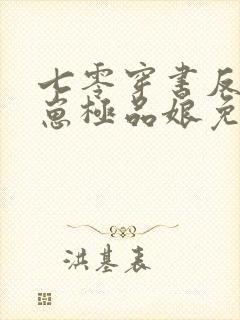 七零穿书反
崽极品娘免
洪基表